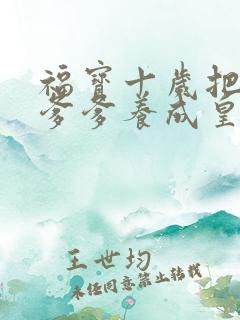 福宝十岁把
爹爹养成皇
王世均
未经同意禁止转载